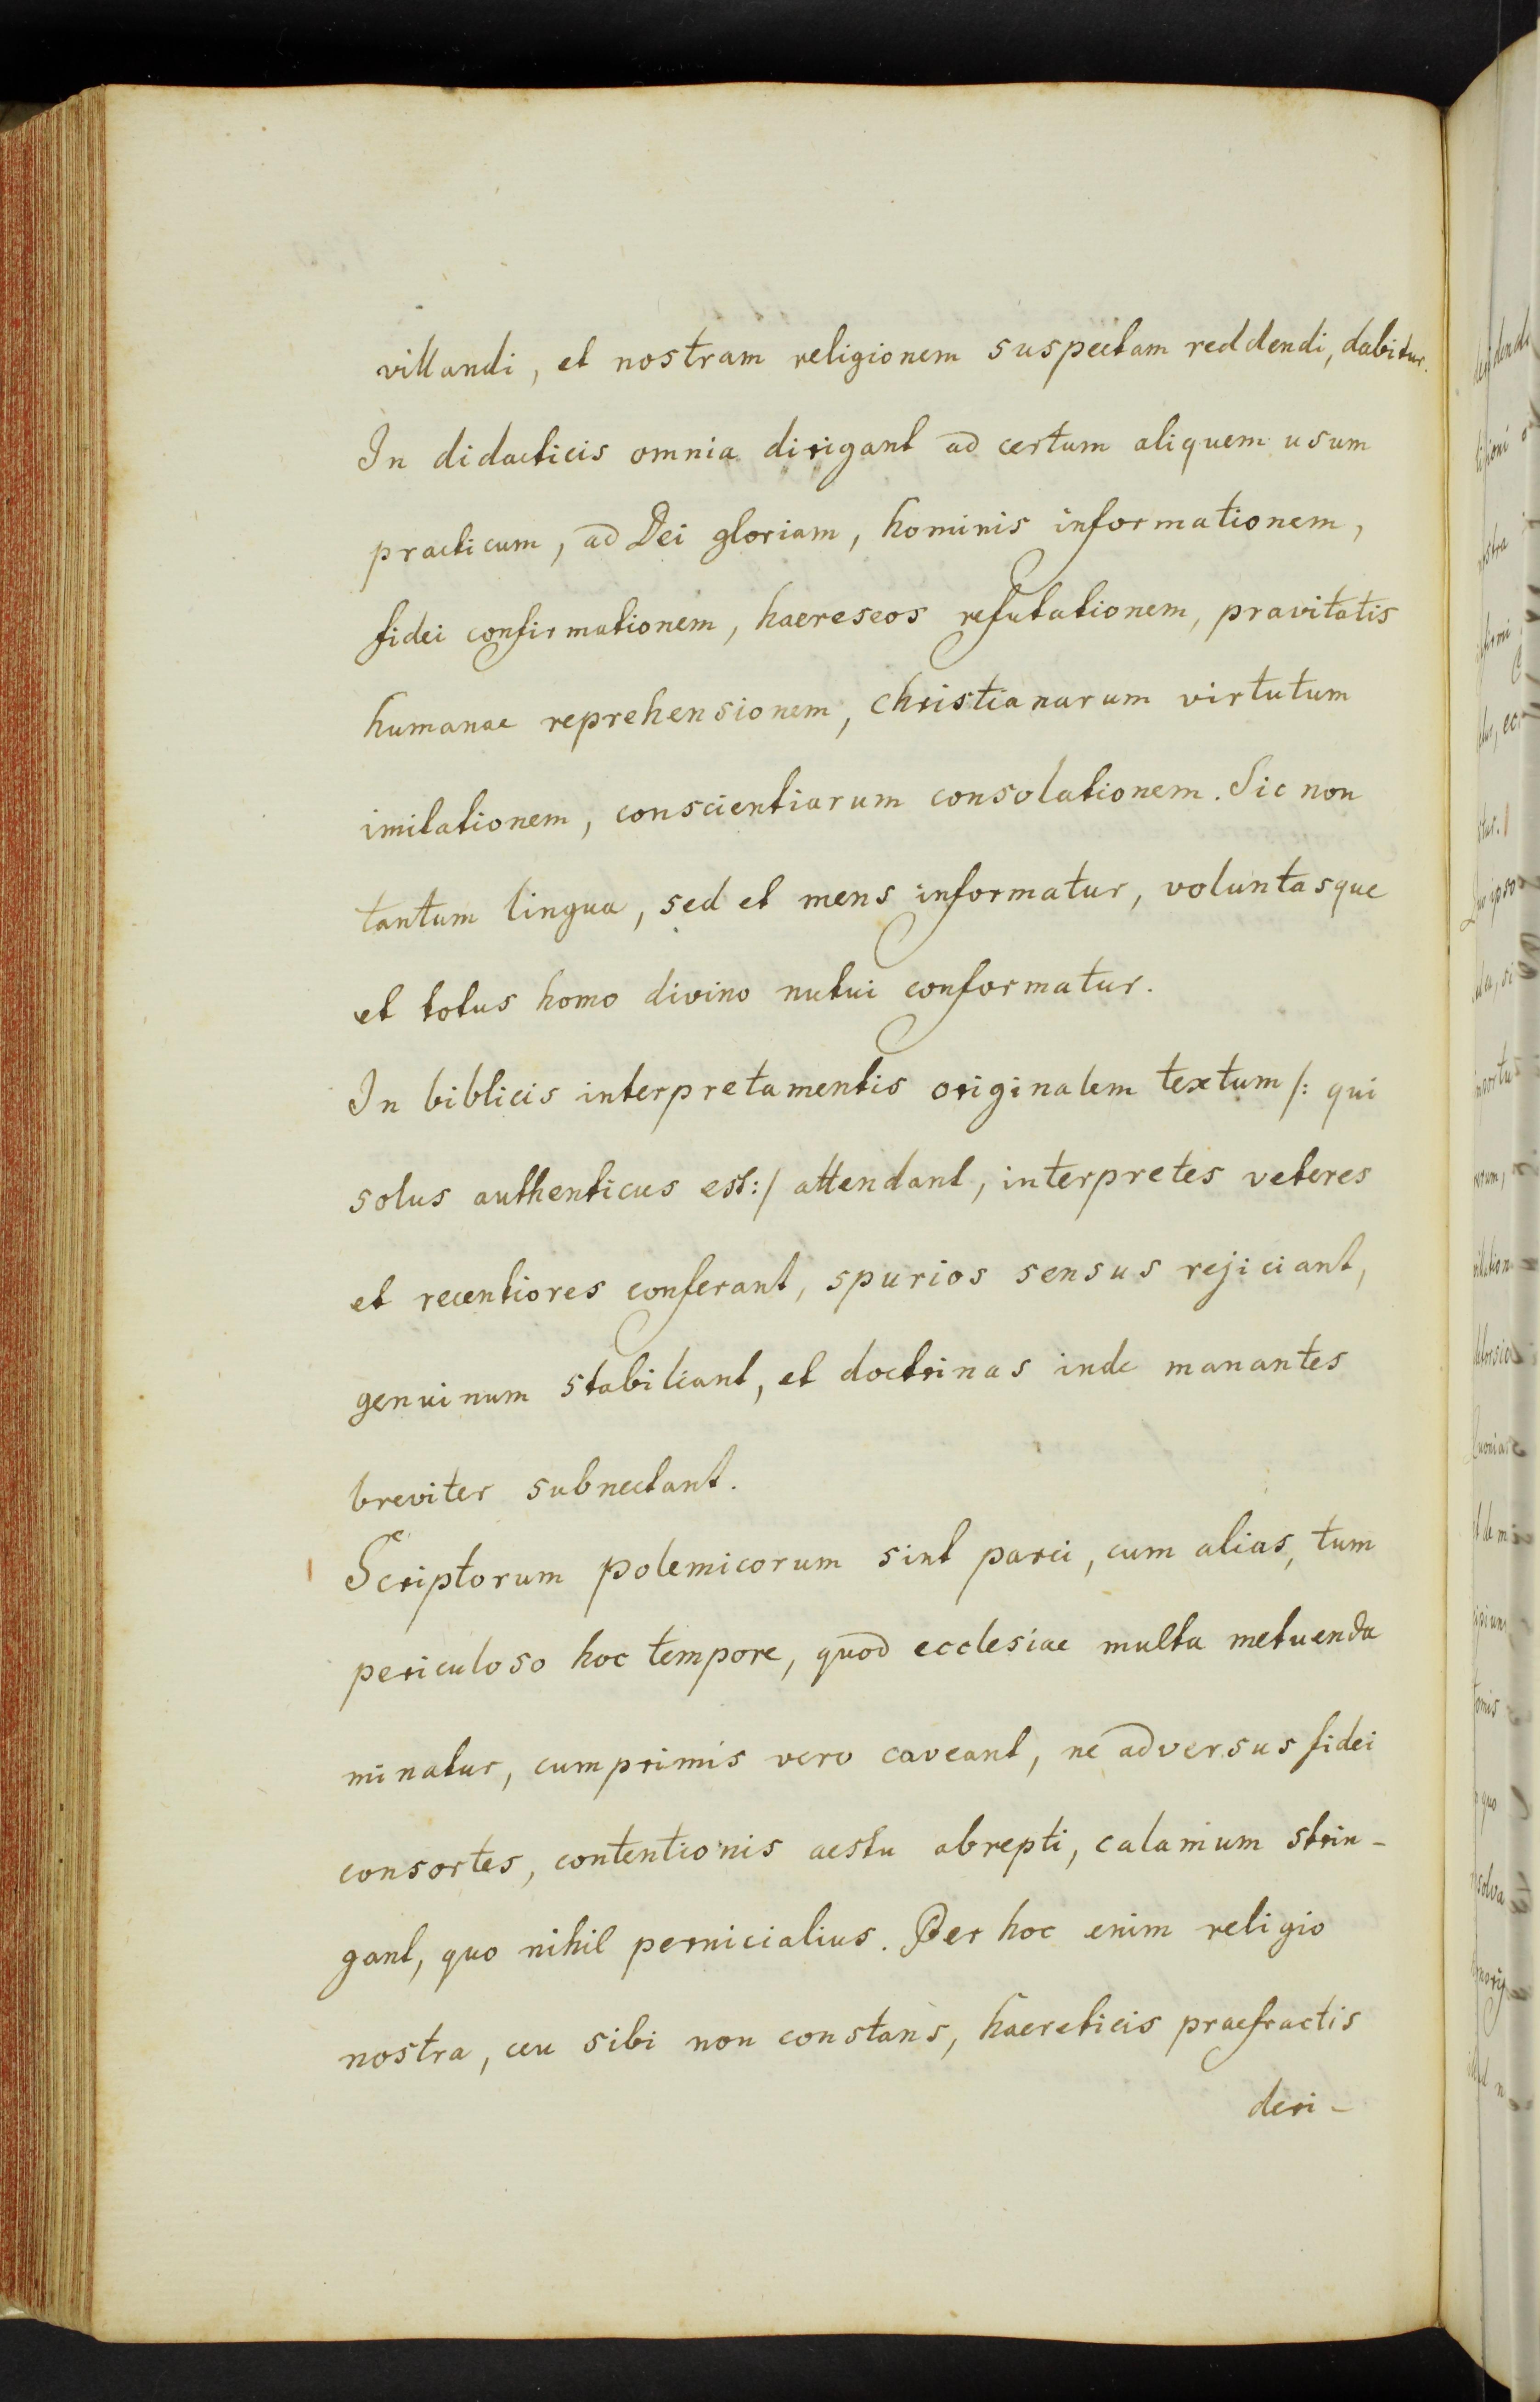 villandi, et nostram religionem suspectam reddendi, dabitur.
In didacticis omnia dirigant ad certum aliquem usum
practicum, ad Dei gloriam, hominis informationem,
fidei confirmationem, haereseos refutationem, pravitatis
humanae reprehensionem, christianarum virtutum
imitationem, conscientiarum consolationem. Sic non
tantum lingua, sed et mens informatur, voluntasque
et totus homo divino nutui conformatur.
In biblicis interpretamentis originalem textum /: qui
solus authenticus est :/ attendant, interpretes veteres
et recentiores conferant, spurios sensus rejiciant,
genuinum stabiliant, et doctrinas inde manantes
breviter subnectant.
Scriptorum polemicorum sint parci, cum alias, tum
periculoso hoc tempore, quod ecclesiae multa metuenda
minatur, cumprimis vero caveant, ne adversus fidei
consortes, contentionis aestu abrepti, calamum strin-
gant, quo nihil pernicialius. Per hoc enim religio
nostra, ceu sibi non constans, haereticis praefractis
deri-